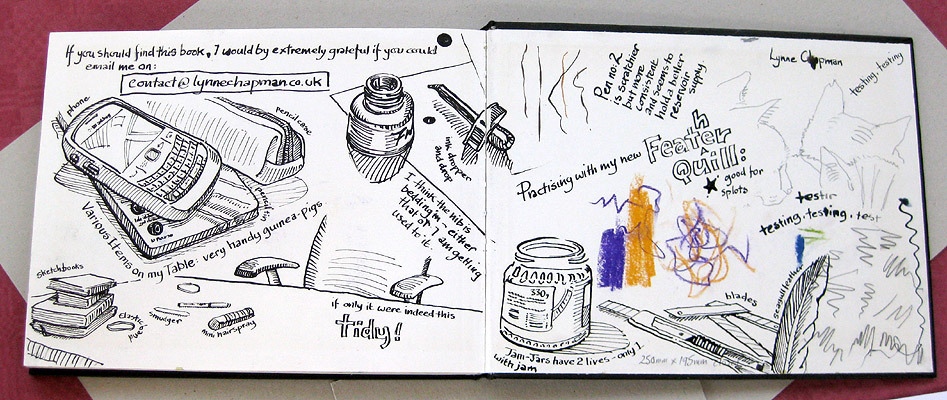 If you should find this book, I would by extremely grateful if you could
email me on:
contact@lynnechapman.co.uk
phone
pencilcase
ink dropper
and drop
I think the nib is
bedding in, either
that or I am getting
used to it.
Various Items on my Table: very handy guinea-pigs
sketchbooks
elastic
putty
smudger
mini hairspray
if only it were indeed this
tidy!
Pen no: 2
is scratchier
but more
consistent
and seems to
hold a better
reservoir
supply.
Lynne Chapman
testing, testing
Practising with my new
Feather
Quill:
good for
splots
testing, testing, test
330g
blades
seagull feather
Jam-Jars have 2 lives - only 1
with jam
250mm x 195mm